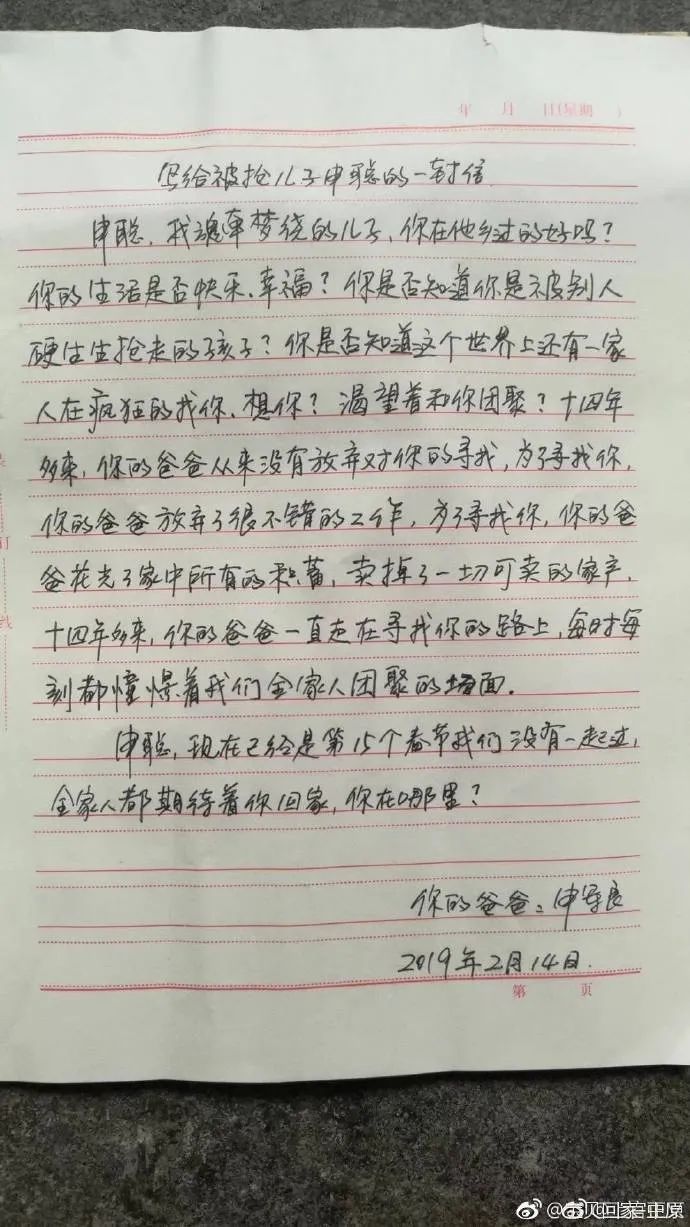 年 月 日(星期 )
写给被抢儿子申聪的一封信
申聪，我魂牵梦绕的儿子，你在他乡过的好吗？
你的生活是否快乐、幸福？你是否知道你是被别人
硬生生抢走的孩子？你是否知道这个世界上还有一家
人在疯狂的找你、想你？渴望着和你团聚？十四年
多来，你的爸爸从来没有放弃对你的寻找，为了寻找你，
你的爸爸放弃了很不错的工作，为了寻找你，你的爸
爸花光了家中所有的积蓄，卖掉了一切可卖的家产，
十四年多来，你的爸爸一直走在寻找你的路上，每时每
刻都憧憬着我们全家人团聚的场面。
申聪，现在已给是第15个春节我们没有一起过，
全家人都期待着你回家，你在哪里？
你的爸爸：申军良
2019年2月14日.
第 页
订
线